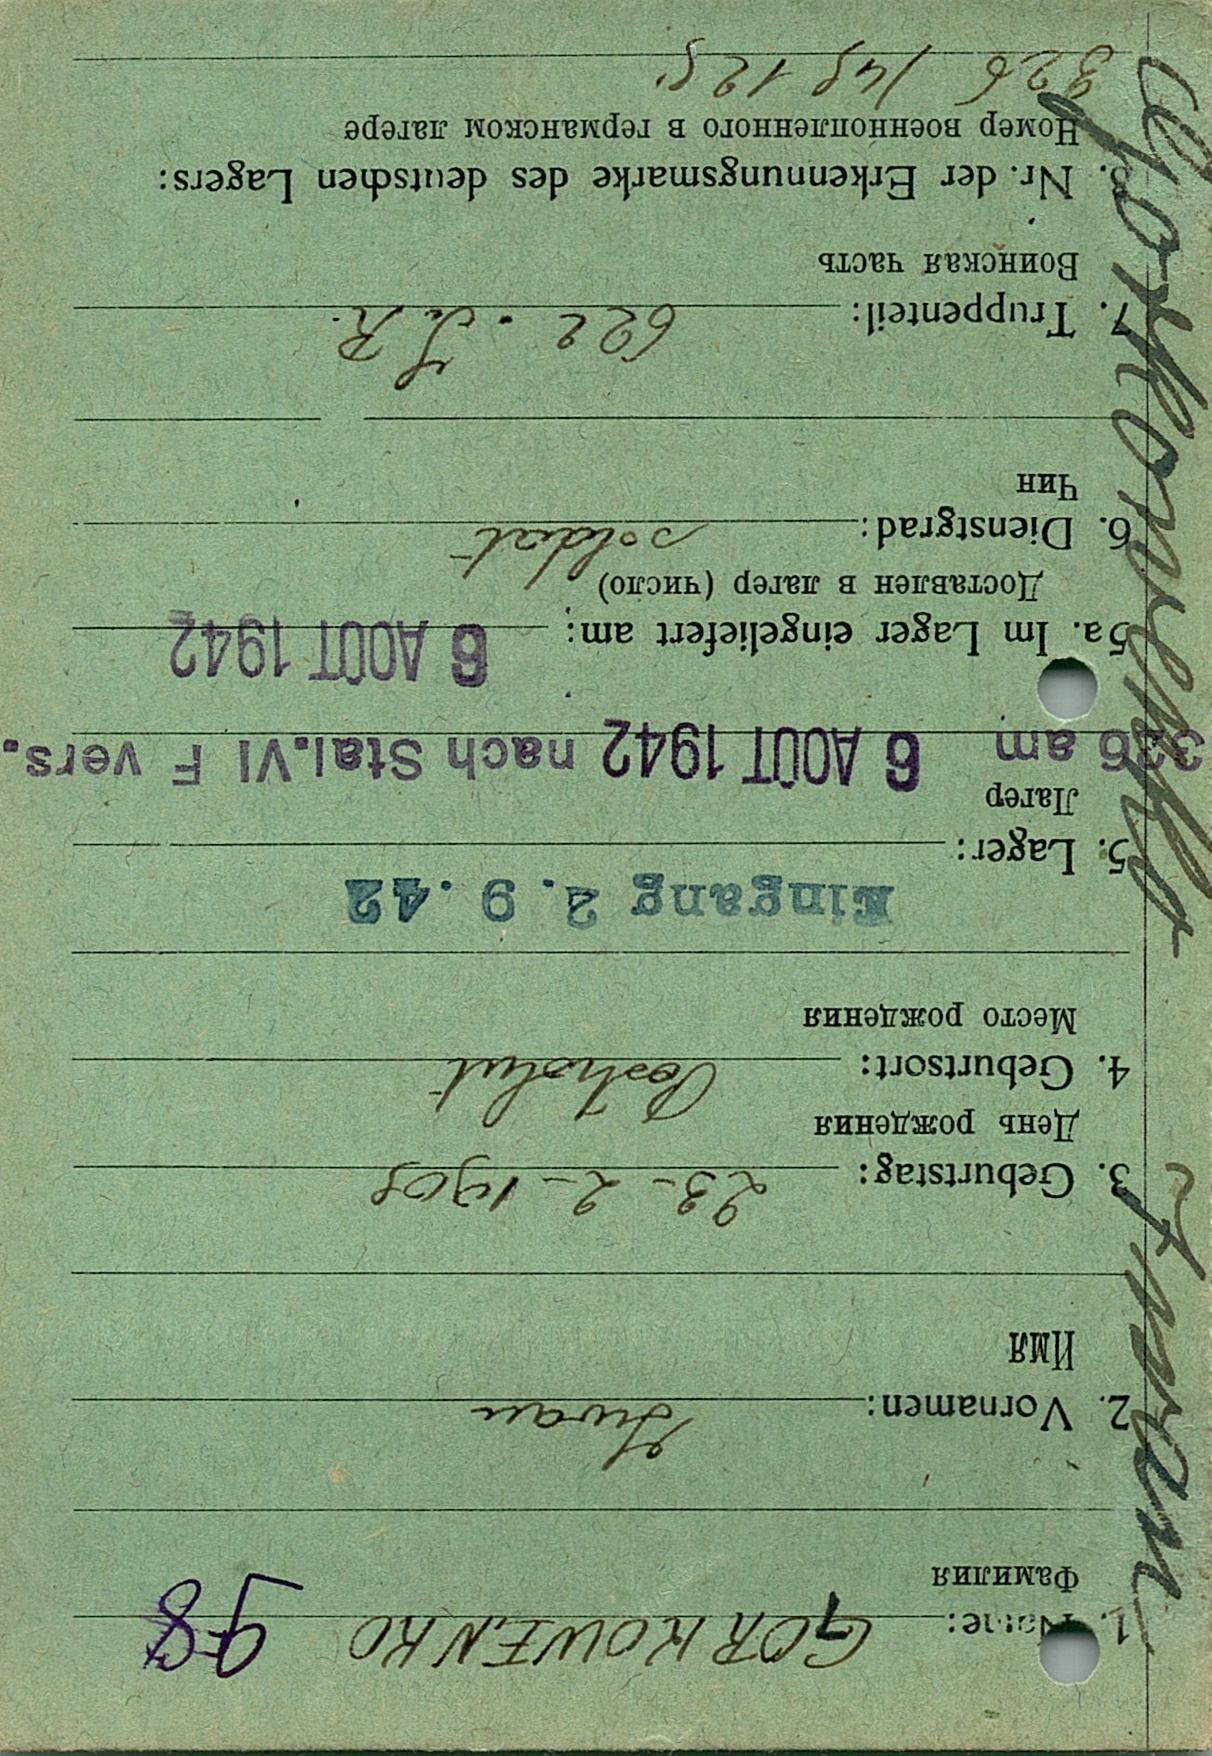 1. Name: GORKOWENKO 98
Фамилия
2. Vornamen: Iwan
Имя
3. Geburtstag: 23-2-1908
День рождения
4. Geburtsort:
Место рождения
Eingang 2.9.42
5. Lager:
Лагер
326 am 6 AOUT 1942 nach Stal.VI F vers.
5a. Im Lager eingeliefert am: 6 AOUT 1942
Доставлен в лагер (число)
6. Dienstgrad: soldat
Чин
7. Truppenteil: 622. I. R.
Воинская часть
8. Nr. der Erkennungsmarke des deutschen Lagers:
Номер военнопленного в германском лагере
326
Gorkowenko Iwan